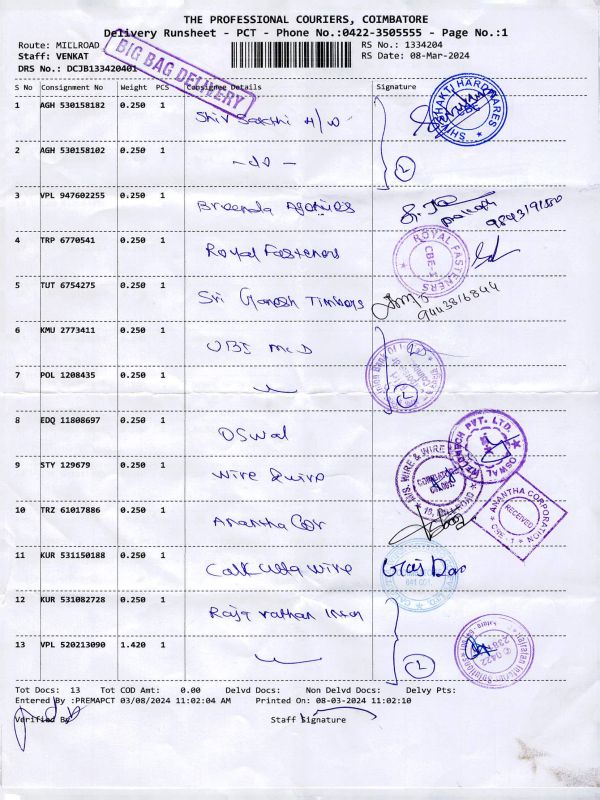 THE PROFESSIONAL COURIERS, COIMBATORE
Delivery Runsheet - PCT - Phone No.:0422-3505555 - Page No.:1
Route: MILLROAD RS No.: 1334204
Staff: VENKAT RS Date: 08-Mar-2024
DRS No.: DCJB133420401
BIG BAG DELIVERY
S No Consignment No Weight PCS Consignee Details Signature
1 AGH 530158182 0.250 1 Shiv Sakthi H/W
SHIV SHAKTI HARDWARES
2 AGH 530158102 0.250 1 - do - 2
3 VPL 947602255 0.250 1 Breenda Agencies
4 TRP 6770541 0.250 1 Royal Fasteners
ROYAL FASTENERS CBE-1
5 TUT 6754275 0.250 1 Sri Ganesh Timbers
9443816844
6 KMU 2773411 0.250 1 UBI McD
7 POL 1208435 0.250 1 2
8 EDQ 11808697 0.250 1 Oswal
9 STY 129679 0.250 1 Wire & wire
WIRE & WIRE
10 TRZ 61017886 0.250 1 Anantha Cor
ANANTHA CORPORATION
RECEIVED
CBE-1
11 KUR 531150188 0.250 1 Calkutta wire
12 KUR 531082728 0.250 1 Raja rathan Infon
13 VPL 520213090 1.420 1 2
Tot Docs: 13 Tot COD Amt: 0.00 Delvd Docs: Non Delvd Docs: Delvy Pts:
Entered By :PREMAPCT 03/08/2024 11:02:04 AM Printed On: 08-03-2024 11:02:10
Verified By Staff Signature